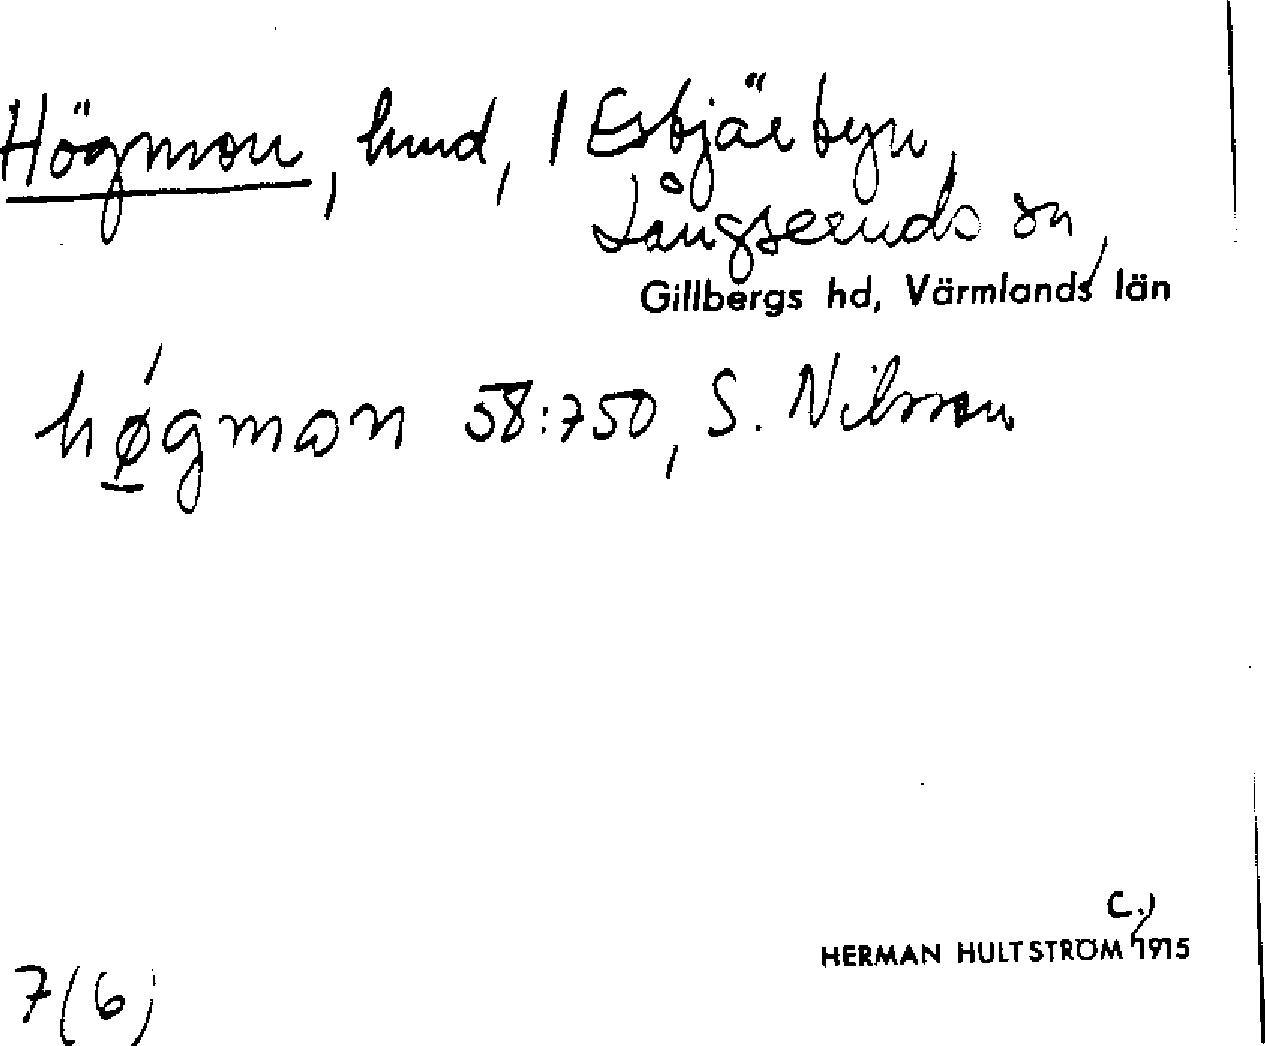 Högmon, hmd, 1 Esbjärbyn,
Långseruds sn,
Gillbergs hd, Värmlands län
høgmon 58:750, S. Nilsson
C.
HERMAN HULTSTRÖM, 1915
7(6)